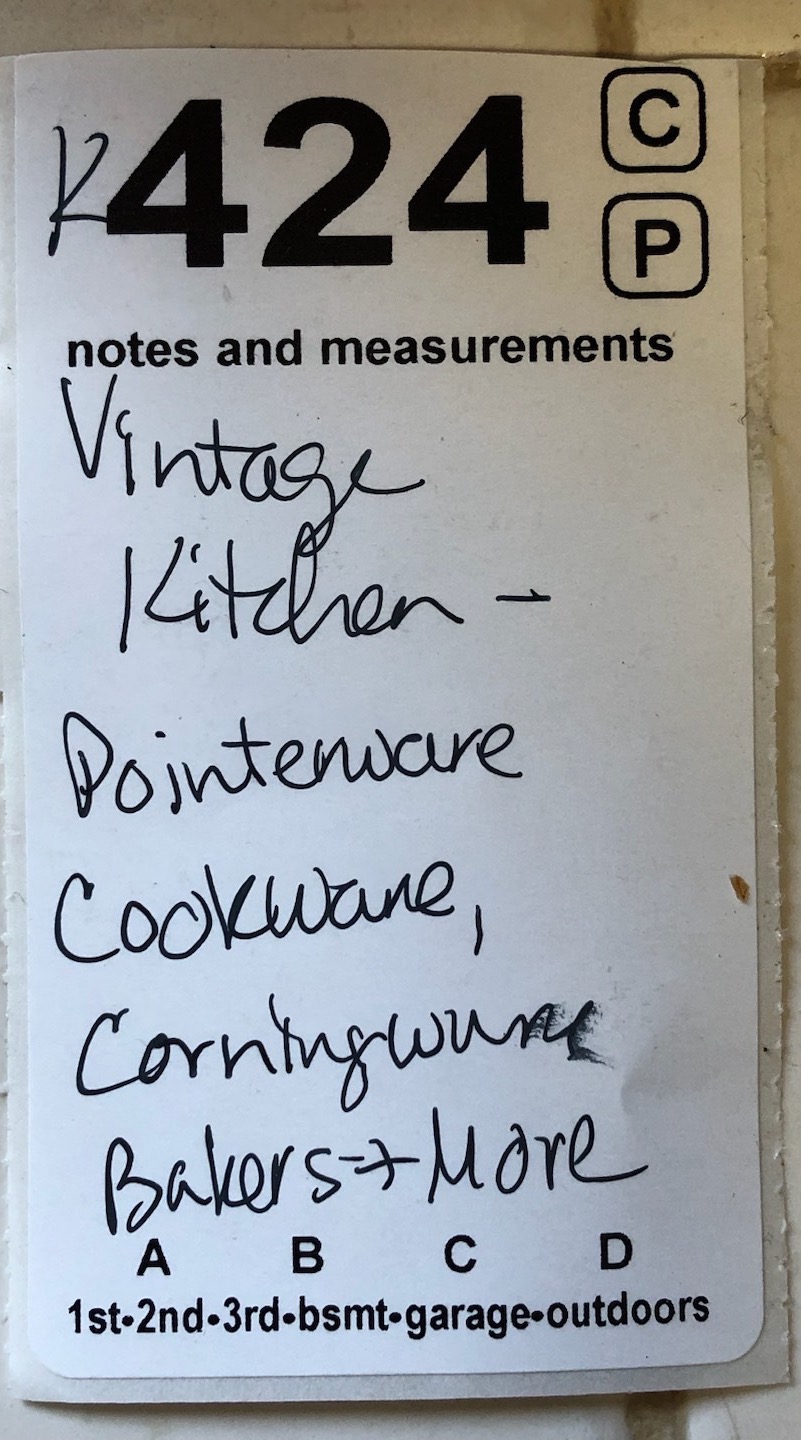 K424 C
P
notes and measurements
Vintage
Kitchen -
Pointerware
Cookware,
Corningware
Bakers + More
A B C D
1st•2nd•3rd•bsmt•garage•outdoors